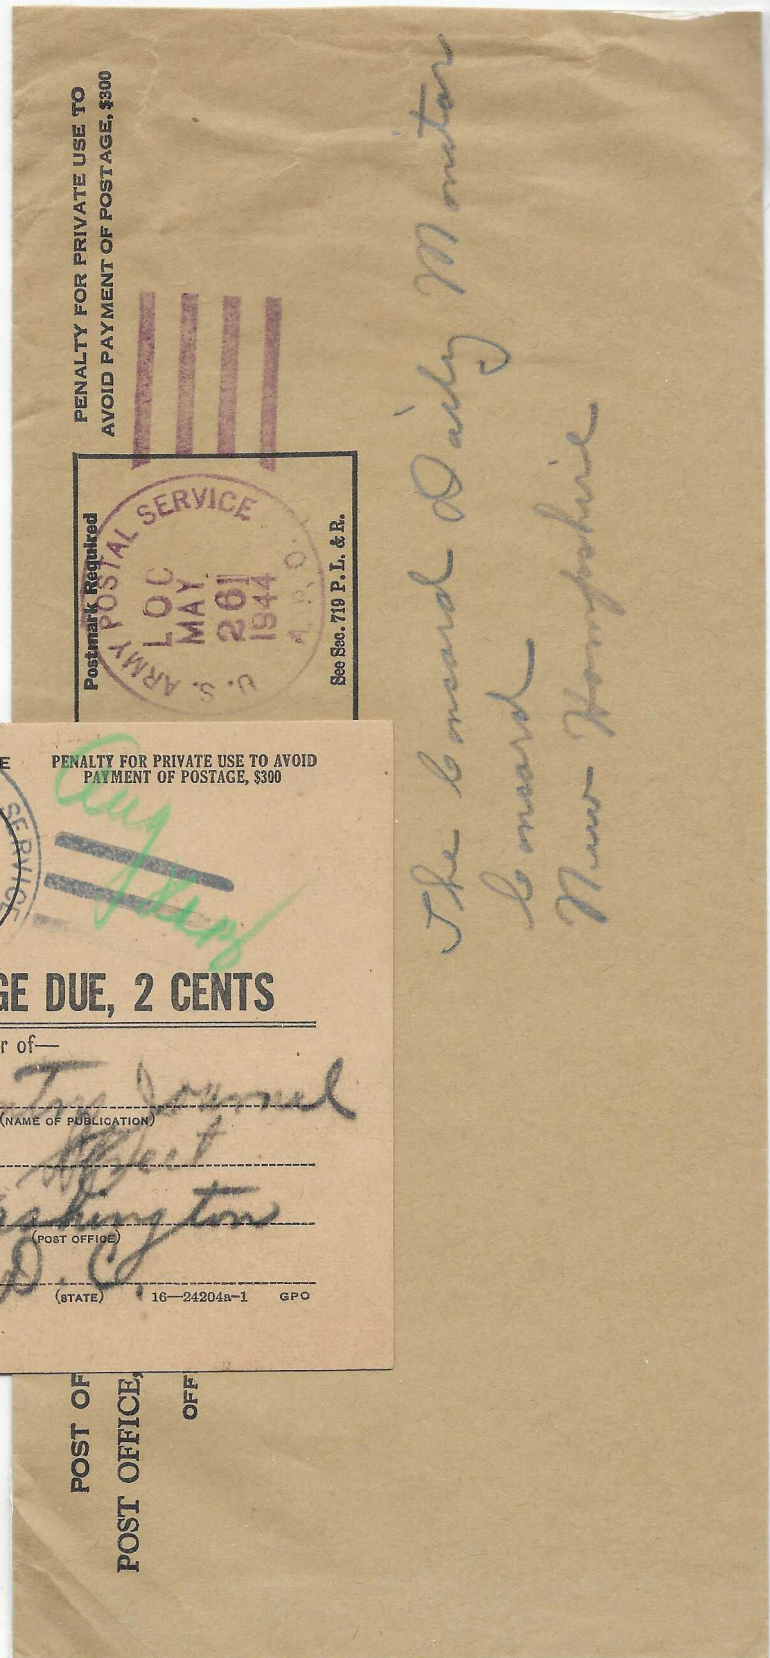 PENALTY FOR PRIVATE USE TO
AVOID PAYMENT OF POSTAGE, $300
Postmark Required
U. S. ARMY POSTAL SERVICE
LOC
MAY
261
1944
A. P. O.
See Sec. 719 P. L. & R.
The Concord Daily Monitor
Concord
New Hampshire
POST OF
POST OFFICE,
OFF
E
PENALTY FOR PRIVATE USE TO AVOID
PAYMENT OF POSTAGE, $300
SERVICE
Aug
GE DUE, 2 CENTS
r of—
Journal
(NAME OF PUBLICATION)
ashington
(POST OFFICE)
D. C.
(STATE) 16—24204a-1 GPO